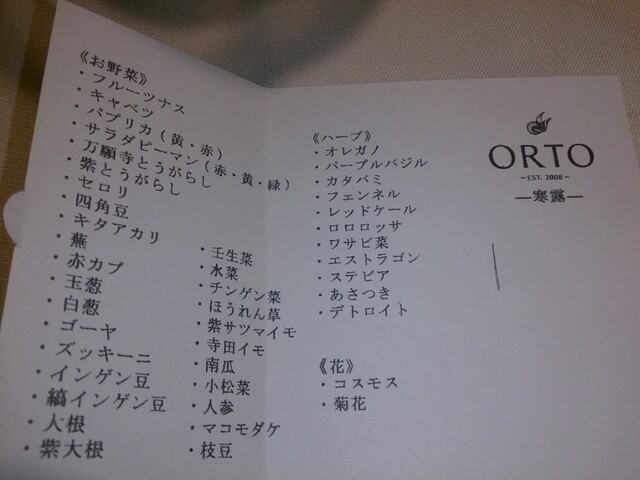 《お野菜》
・フルーツナス
・キャベツ
・パプリカ（黄・赤）
・サラダピーマン（赤・黄・緑）
・万願寺とうがらし
・紫とうがらし
・セロリ
・四角豆
・キタアカリ
・蕪
・赤カブ
・玉葱
・白葱
・ゴーヤ
・ズッキーニ
・インゲン豆
・縞インゲン豆
・大根
・紫大根
・壬生菜
・水菜
・チンゲン菜
・ほうれん草
・紫サツマイモ
・寺田イモ
・南瓜
・小松菜
・人参
・マコモダケ
・枝豆
《ハーブ》
・オレガノ
・パープルバジル
・カタバミ
・フェンネル
・レッドケール
・ロロロッサ
・ワサビ菜
・エストラゴン
・ステビア
・あさつき
・デトロイト
《花》
・コスモス
・菊花
ORTO
－EST. 2008－
―寒露―